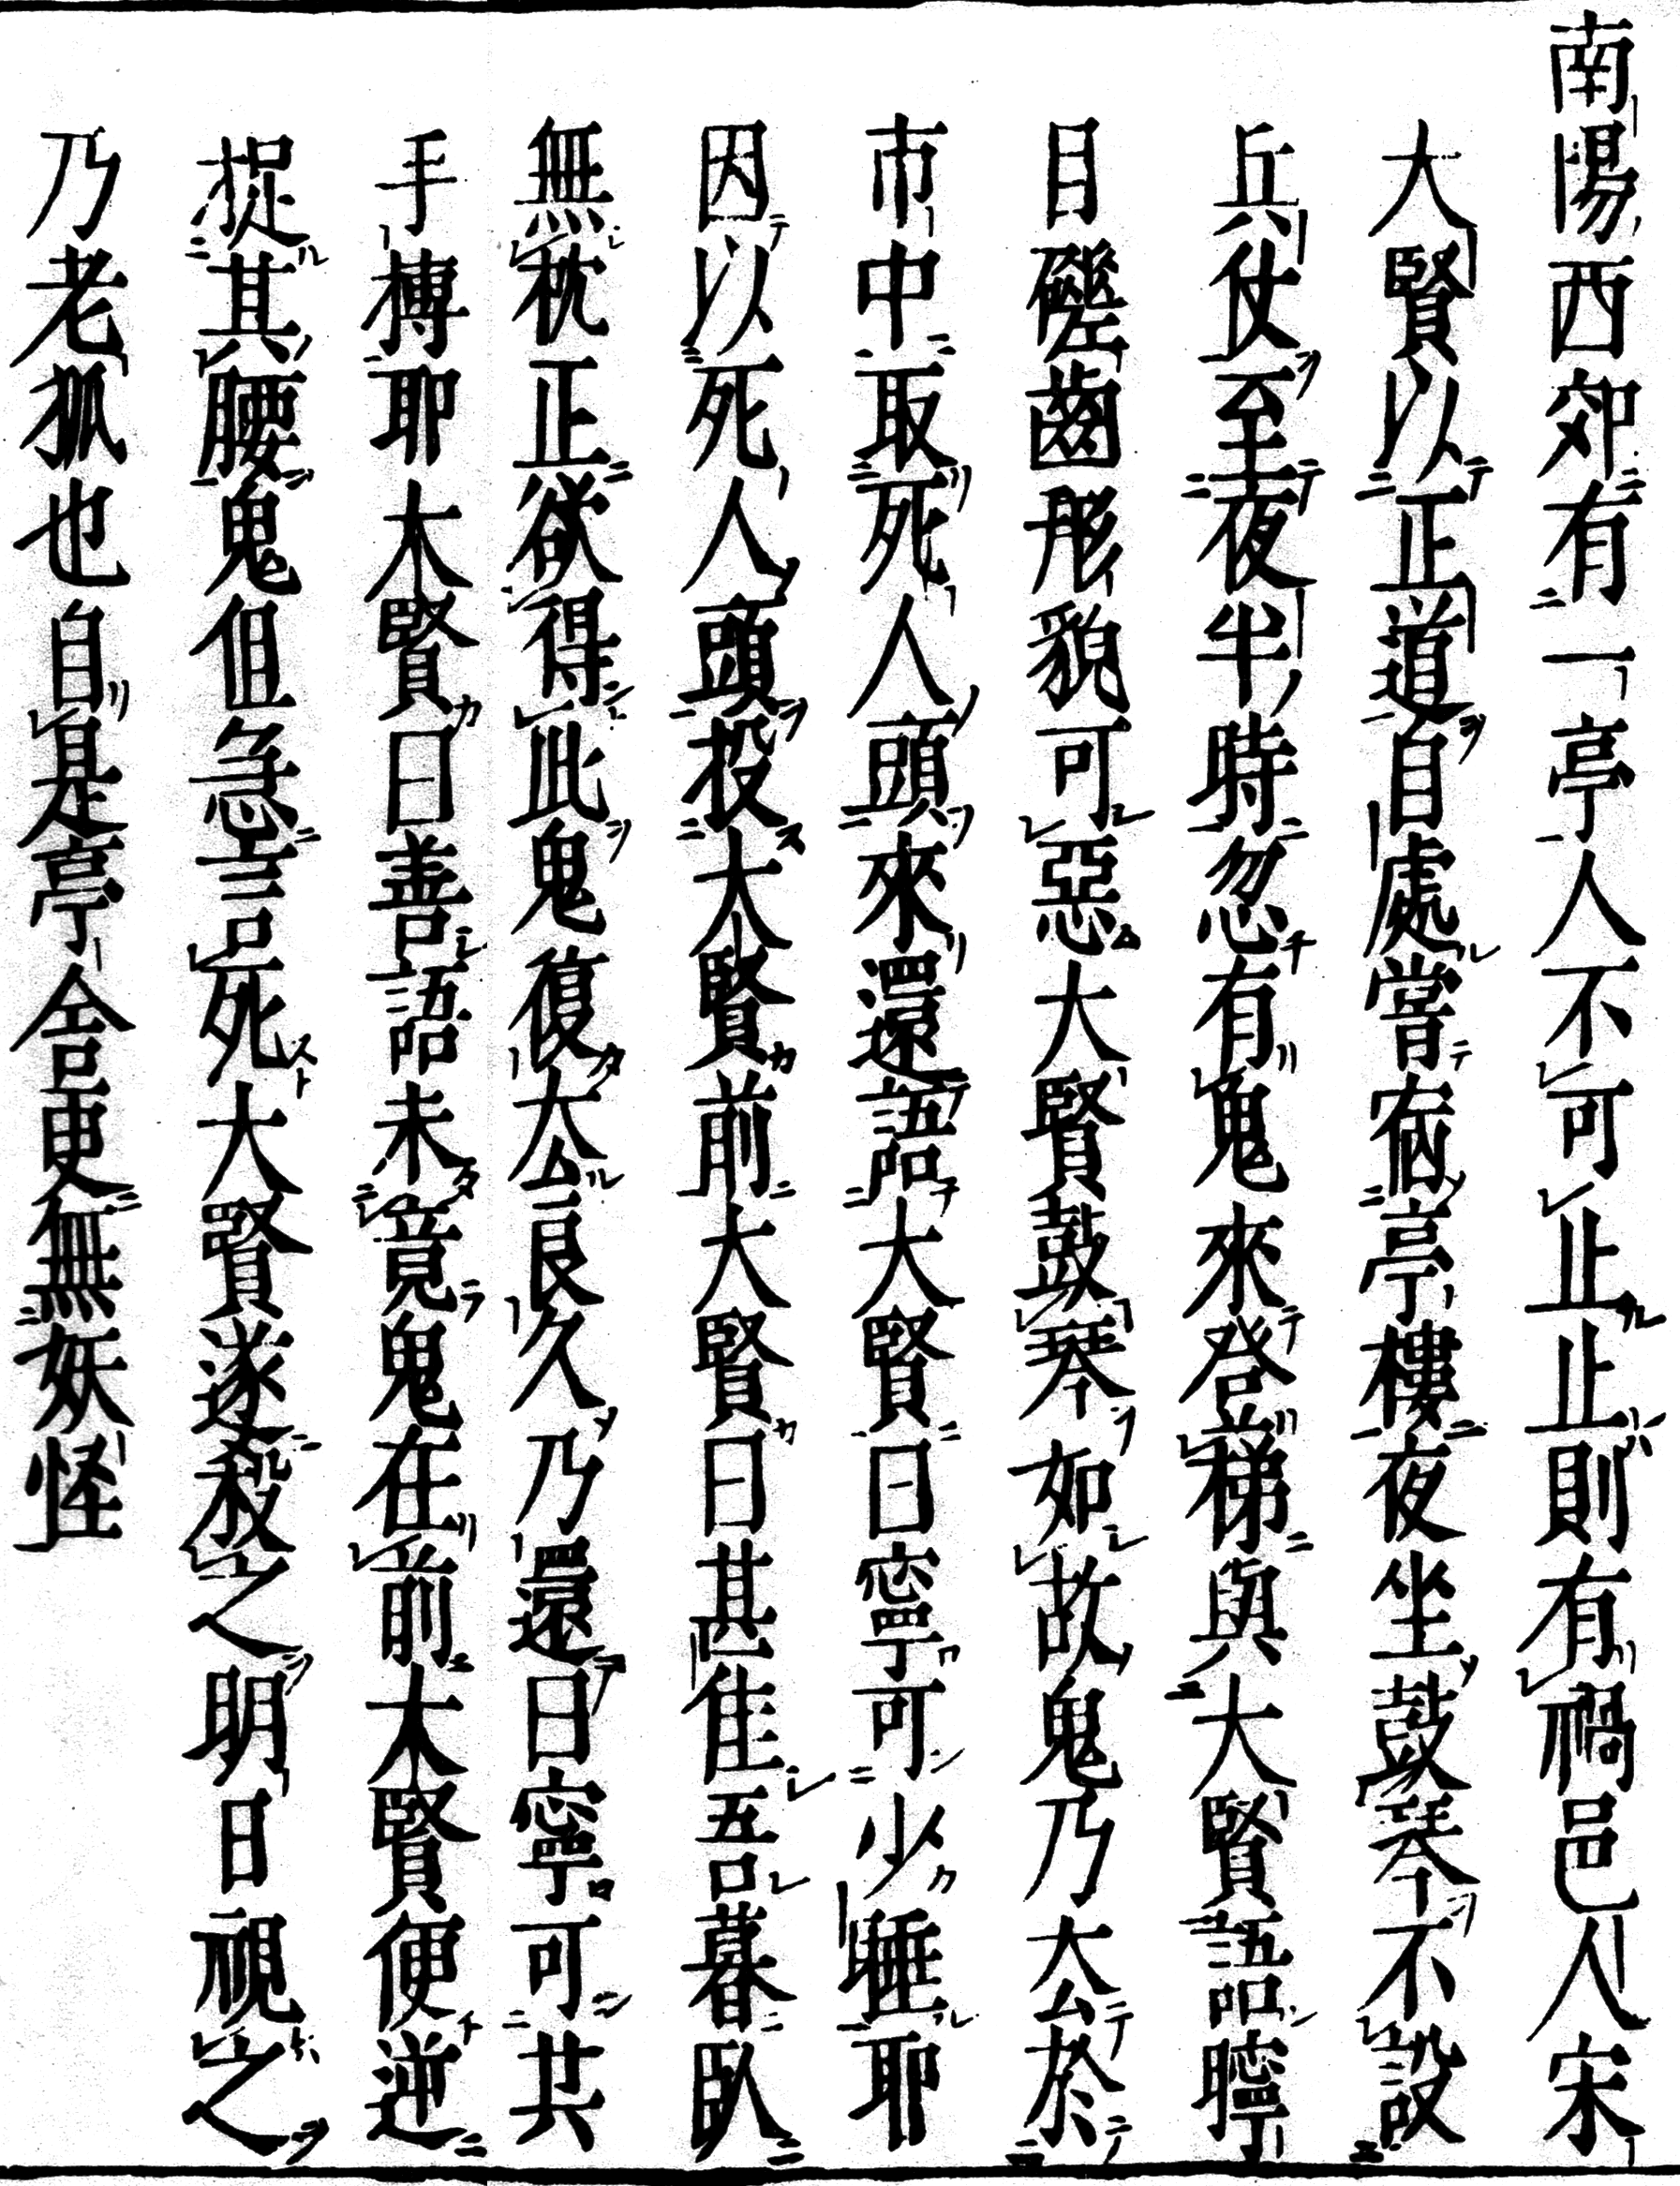 南陽西郊有一亭人不可止止則有禍邑人宋
大賢以正道自處嘗宿亭樓夜坐鼓琴不設
兵仗至夜半時忽有鬼來登梯與大賢語聹
目磋齒形貌可惡大賢鼓琴如故鬼乃去於
市中取死人頭來還語大賢曰寧可少睡耶
因以死人頭投大賢前大賢曰甚佳吾暮臥
無枕正欲得此鬼復去良久乃還曰寧可共
手搏耶大賢曰善語未竟鬼在前大賢便逆
捉其腰鬼但急言死大賢遂殺之明日視之
乃老狐也自是亭舍更無妖怪